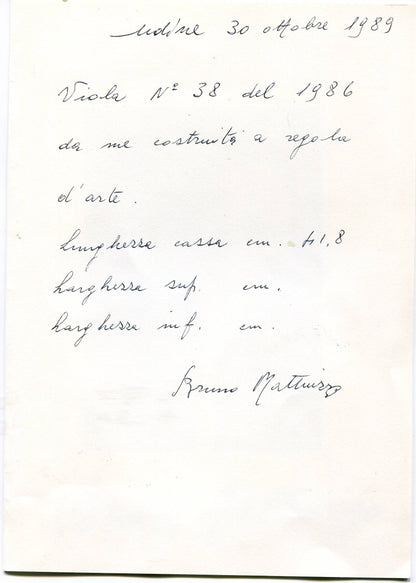 Udine 30 ottobre 1989
Viola Nº 38 del 1986
da me costruita a regola
d'arte.
Lunghezza cassa cm. 41,8
Larghezza sup. cm.
Larghezza inf. cm.
Bruno